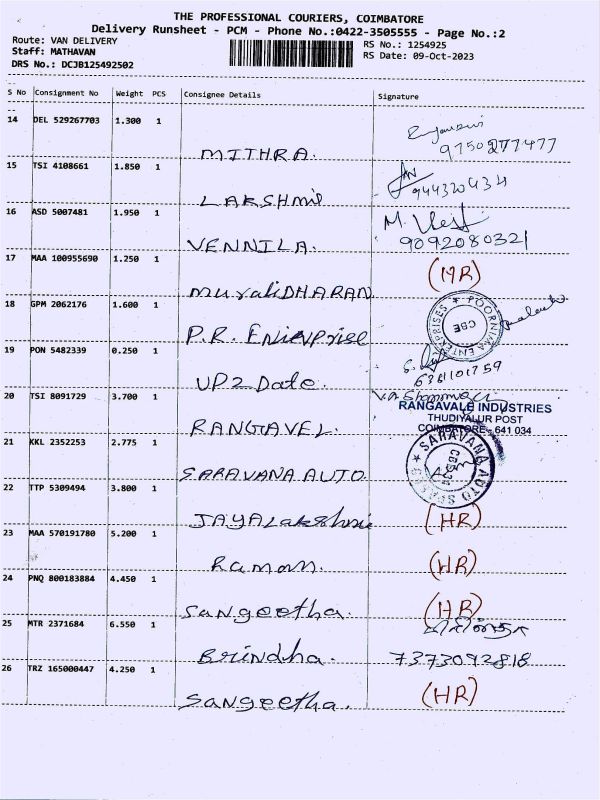 THE PROFESSIONAL COURIERS, COIMBATORE
Delivery Runsheet - PCM - Phone No.:0422-3505555 - Page No.:2
Route: VAN DELIVERY
RS No.: 1254925
Staff: MATHAVAN
RS Date: 09-Oct-2023
DRS No.: DCJB125492502
S No Consignment No Weight PCS Consignee Details Signature
14 DEL 529267703 1.300 1
MITHRA. 9750277477
15 TSI 4108661 1.850 1
LAKSHmi 944320434
16 ASD 5007481 1.950 1
VENNILA. 9092080321
17 MAA 100955690 1.250 1 (MR)
muraliDHARAN
18 GPM 2062176 1.600 1
POORNIMA ENTERPRISES CBE
P.R. Enterprise
19 PON 5482339 0.250 1
UP2Date. 6381101759
20 TSI 8091729 3.700 1
RANGAVALE INDUSTRIES
THUDIYALUR POST
COIMBATORE - 641 034
RANGAVEL.
21 KKL 2352253 2.775 1
SARAVANA AUTO SPARES
SARAVANA AUTO
22 TTP 5309494 3.800 1
JAYALakshmi (HR)
23 MAA 570191780 5.200 1
Raman. (HR)
24 PNQ 800183884 4.450 1
Sangeetha. (HR)
25 MTR 2371684 6.550 1
Brindha. 7373092818
26 TRZ 165000447 4.250 1
Sangeetha. (HR)